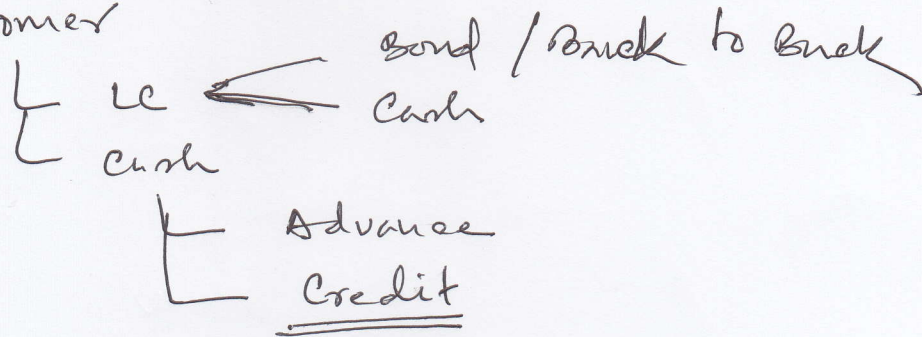 omer
LC
Bond / Back to Back
Cash
Cash
Advance
Credit